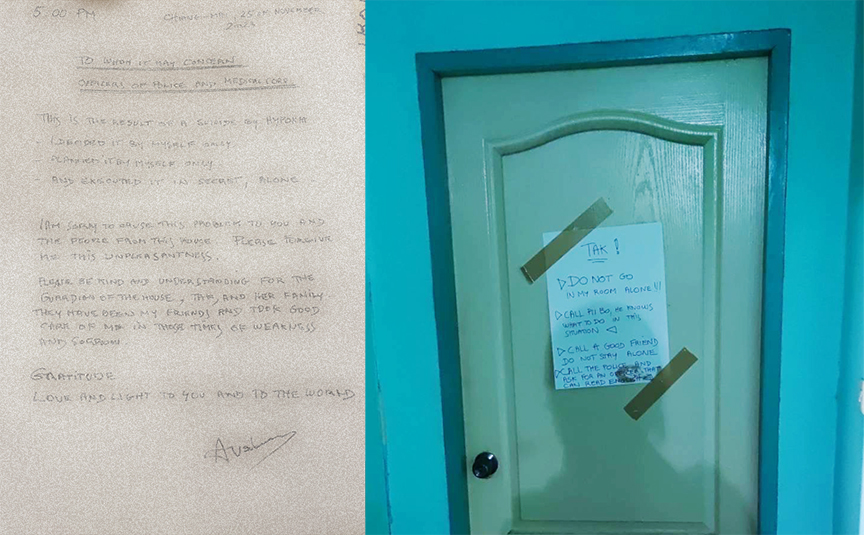 5.00 PM
CHIANG-MAI, 25TH NOVEMBER
TO WHOM IT MAY CONCERN
OFFICERS OF POLICE AND
THIS IS THE RESULT OF A SUICIDE BY
- I DECIDED IT BY MYSELF ONLY
- PLANNED IT BY MYSELF ONLY
- AND EXECUTED IT IN SECRET, ALONE -
I AM SORRY TO CAUSE THIS PROBLEM TO YOU AND
THE PEOPLE FROM THIS HOUSE. PLEASE FORGIVE
ME THIS UNPLEASANTNESS.
PLEASE BE KIND AND UNDERSTANDING FOR THE
GUARDIAN OF THE HOUSE, TAK, AND HER FAMILY
THEY HAVE BEEN MY FRIENDS AND TOOK GOOD
CARE OF ME IN THESE TIMES OF WEAKNESS
AND SORROW
GRATITUDE
LOVE AND LIGHT TO YOU AND TO THE WORLD
TAK!
▷ DO NOT GO
IN MY ROOM ALONE!!!
▷ CALL BO, HE KNOWS
WHAT TO DO IN THIS
SITUATION ◁
▷ CALL A GOOD FRIEND
DO NOT STAY ALONE
▷ CALL THE POLICE AND
ASK FOR AN THAT
CAN READ